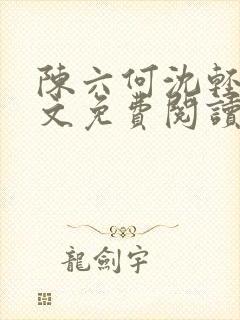 陳六何沈輕
文免費閱讀
龍劍宇